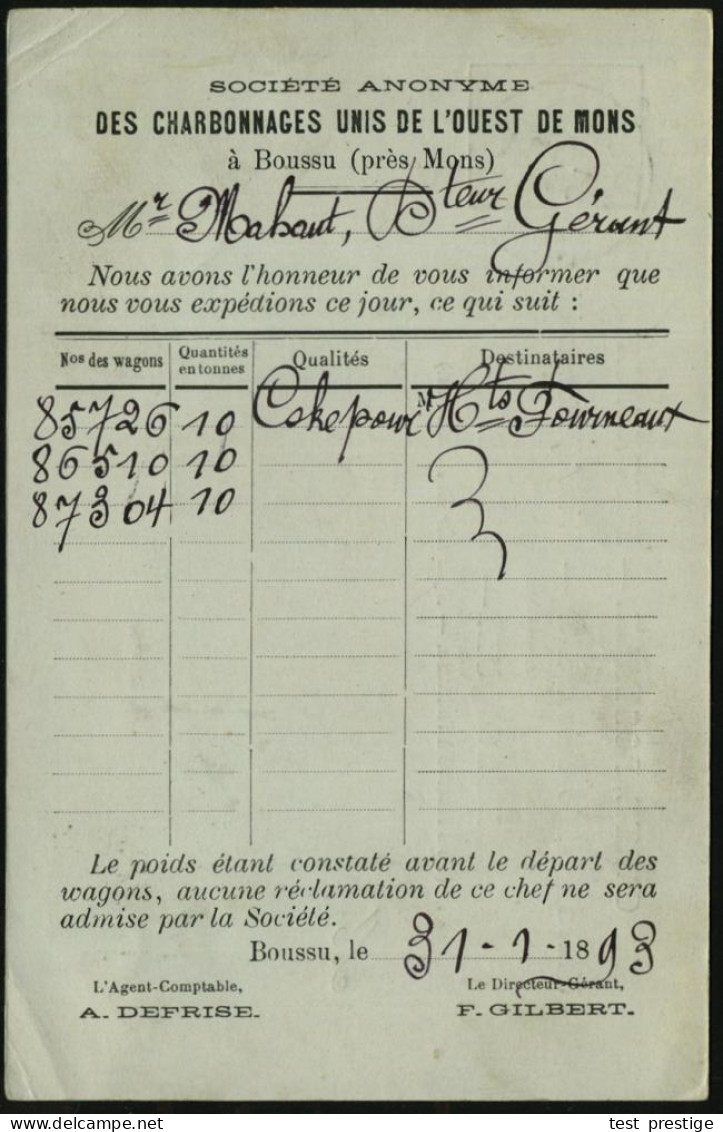 SOCIÉTÉ ANONYME
DES CHARBONNAGES UNIS DE L'OUEST DE MONS
à Boussu (près Mons)
Mr Mahaut, Dteur Gérant
Nous avons l'honneur de vous informer que
nous vous expédions ce jour, ce qui suit :
Nos des wagons Quantités en tonnes Qualités Destinataires
85726 10 Coke pour M Hts Fourneaux
86510 10
87304 10
Le poids étant constaté avant le départ des
wagons, aucune réclamation de ce chef ne sera
admise par la Société.
Boussu, le 31-1-1893
L'Agent-Comptable, Le Directeur-Gérant,
A. DEFRISE. F. GILBERT.
test prestige